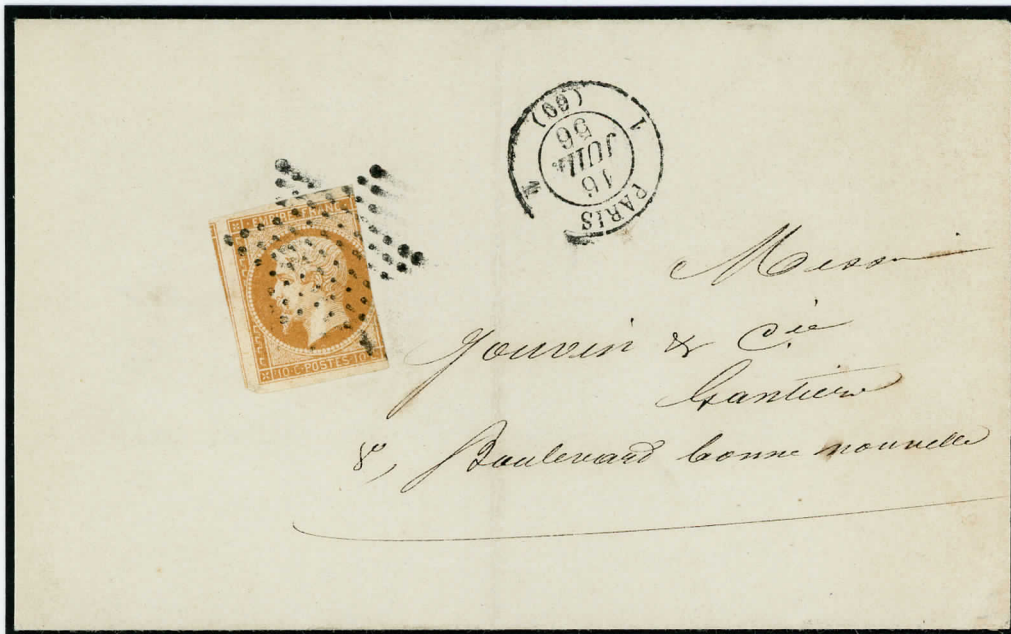 PARIS
1
(60)
16
JUIL.
56
EMPIRE FRANC
10·C·POSTES·10
1
Messi
Jouvin & Cie
Gantiers
8, Boulevard bonne nouvelle